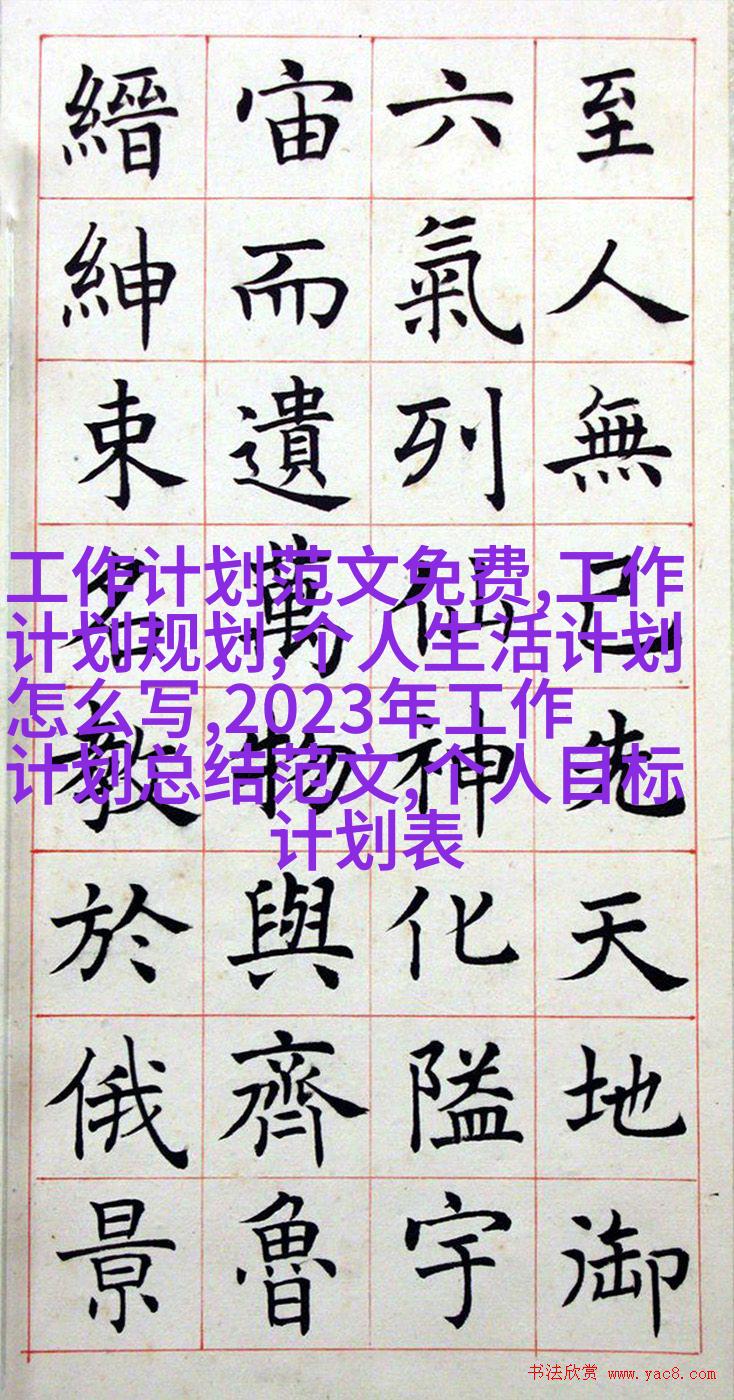 至人無己先天地御
六氣列仙神化隘宇
宙而遺萬物與齊魯
縉紳束名教於俄景
工作计划范文免费,工作
计划规划,个人生活计划
怎么写,2023年工作
计划总结范文,个人目标
计划表
书法欣赏 www.yac8.com